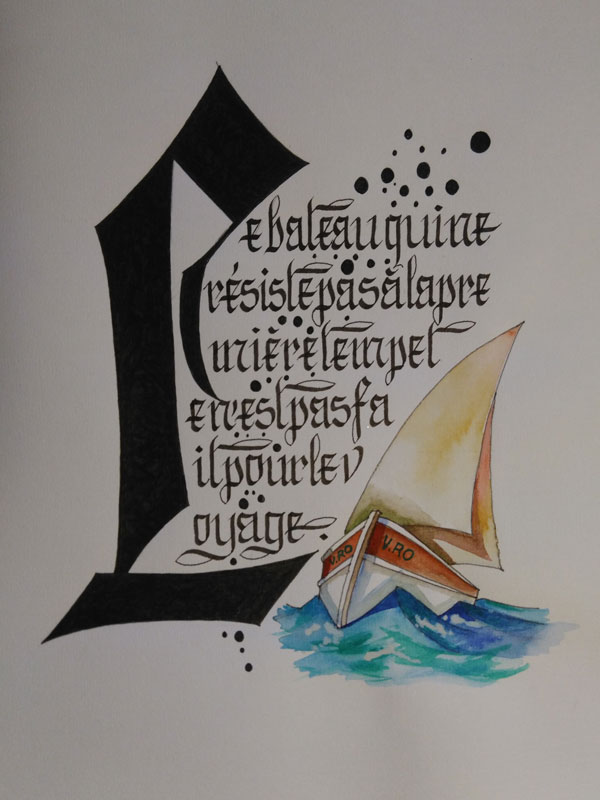 Le bateau qui ne
résiste pas à la pre
mière tempet
e n'est pas fa
it pour le v
oyage.
V.RO V.RO